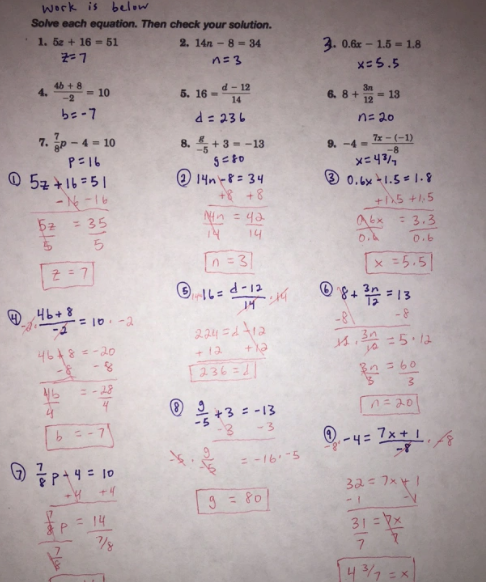 Work is below
Solve each equation. Then check your solution.
1. 5z + 16 = 51
2. 14n − 8 = 34
3. 0.6x − 1.5 = 1.8
z = 7
n = 3
x = 5.5
4. (4b + 8)/−2 = 10
5. 16 = (d − 12)/14
6. 8 + 3n/12 = 13
b = -7
d = 236
n = 20
7. 7/8 p − 4 = 10
8. g/−5 + 3 = −13
9. −4 = (7x − (−1))/−8
p = 16
g = 80
x = 4 3/7
① 5z + 16 = 51
-16 -16
5z/5 = 35/5
z = 7
② 14n - 8 = 34
+8 +8
14n/14 = 42/14
n = 3
③ 0.6x - 1.5 = 1.8
+1.5 +1.5
0.6x/0.6 = 3.3/0.6
x = 5.5
④ -2 · (4b + 8)/-2 = 10 · -2
4b + 8 = -20
-8 -8
4b/4 = -28/4
b = -7
⑤ 14 · 16 = (d - 12)/14 · 14
224 = d - 12
+12 +12
236 = d
⑥ 8 + 3n/12 = 13
-8 -8
12 · 3n/12 = 5 · 12
3n/3 = 60/3
n = 20
⑦ 7/8 p - 4 = 10
+4 +4
7/8 p = 14
7/8 7/8
⑧ g/-5 + 3 = -13
-3 -3
-5 · g/-5 = -16 · -5
g = 80
⑨ -8 · -4 = (7x + 1)/-8 · -8
32 = 7x + 1
-1 -1
31/7 = 7x/7
4 3/7 = x